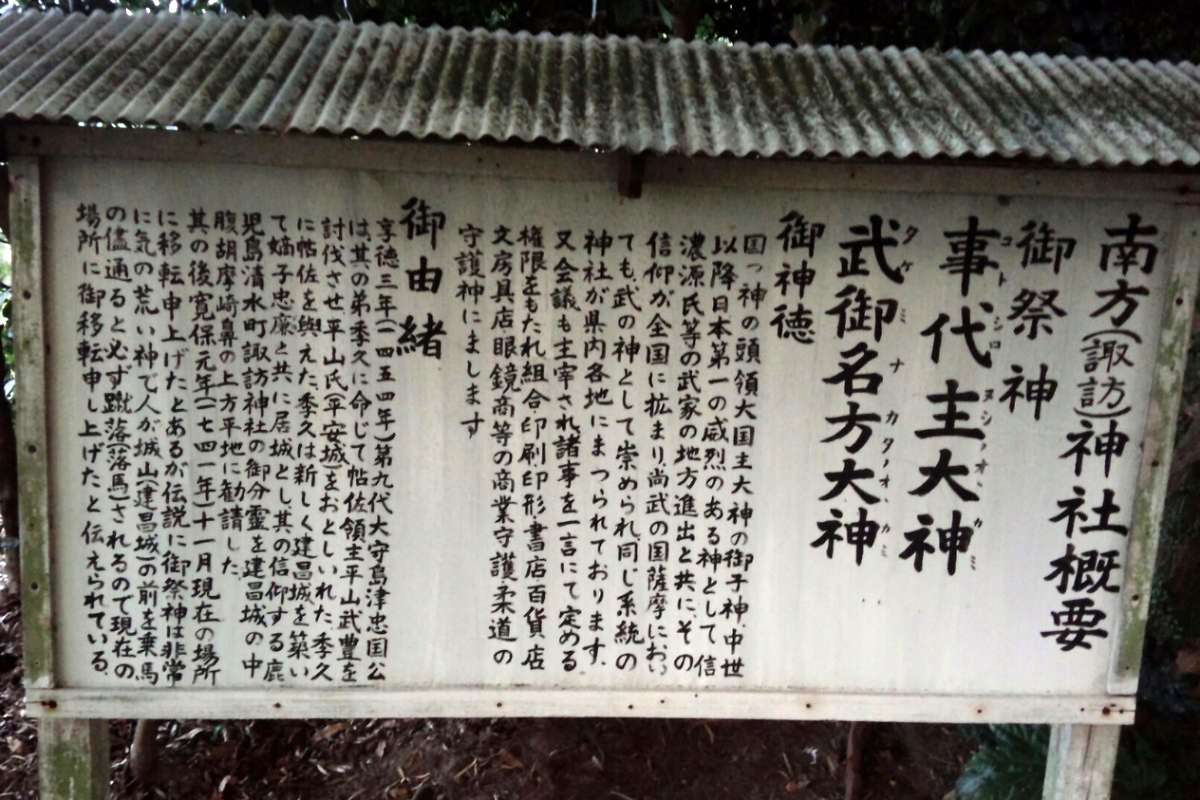 南方(諏訪)神社概要
御祭神
事代主大神
コトシロヌシノオオカミ
武御名方大神
タケミナカタノオオカミ
御神徳
国っ神の頭領大国主大神の御子神、中世
以降日本第一の威烈のある神として、信
濃源氏等の武家の地方進出と共に、その
信仰が全国に拡まり、尚武の国薩摩におい
ても、武の神として崇められ、同じ系統の
神社が県内各地にまつられております。
又会議も主宰され諸事を一言にて定める
権限をもたれ組合・印刷・印形・書店百貨店
文房具店眼鏡商等の商業守護柔道の
守護神にまします
御由緒
享徳三年(一四五四年)第九代大守島津忠国公
は、其の弟季久に命じて帖佐領主平山武豊を
討伐させ平山氏(平安城)をおとしいれた、季久
に帖佐を與えた、季久は新しく建昌城を築い
て嫡子忠廉と共に居城とし其の信仰する鹿
児島清水町諏訪神社の御分霊を建昌城の中
腹胡摩崎鼻の上方平地に勧請した
其の後寛保元年(一七四一年)十一月現在の場所
に移転申上げたとあるが伝説に御祭神は非常
に気の荒い神で人が城山(建昌城)の前を乗馬
の儘通ると必ず蹴落(落馬)されるので現在の
場所に御移転申し上げたと伝えられている。